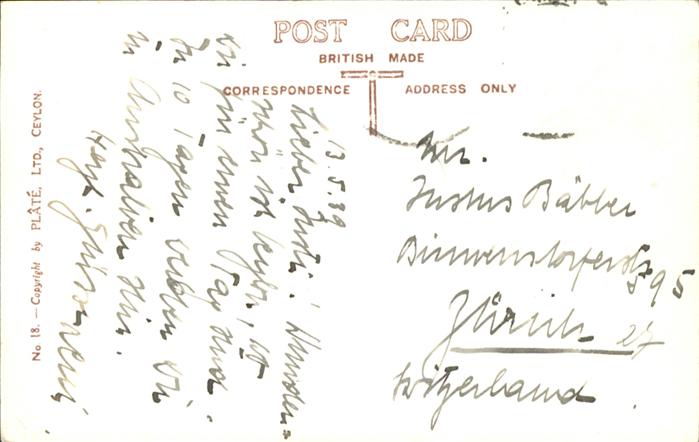 POST CARD
BRITISH MADE
CORRESPONDENCE ADDRESS ONLY
No 18. — Copyright by PLÂTÉ, LTD., CEYLON.
13.5.39
Lieber Justi! Wunder=
schön ist Ceylon, wo
wir für einen Tag sind.
In 10 Tagen werden wir
in Australien sein.
Herzl.
Mr.
Justus Bäbler
Birmenstorferstr
595
Zürich 27
Switzerland